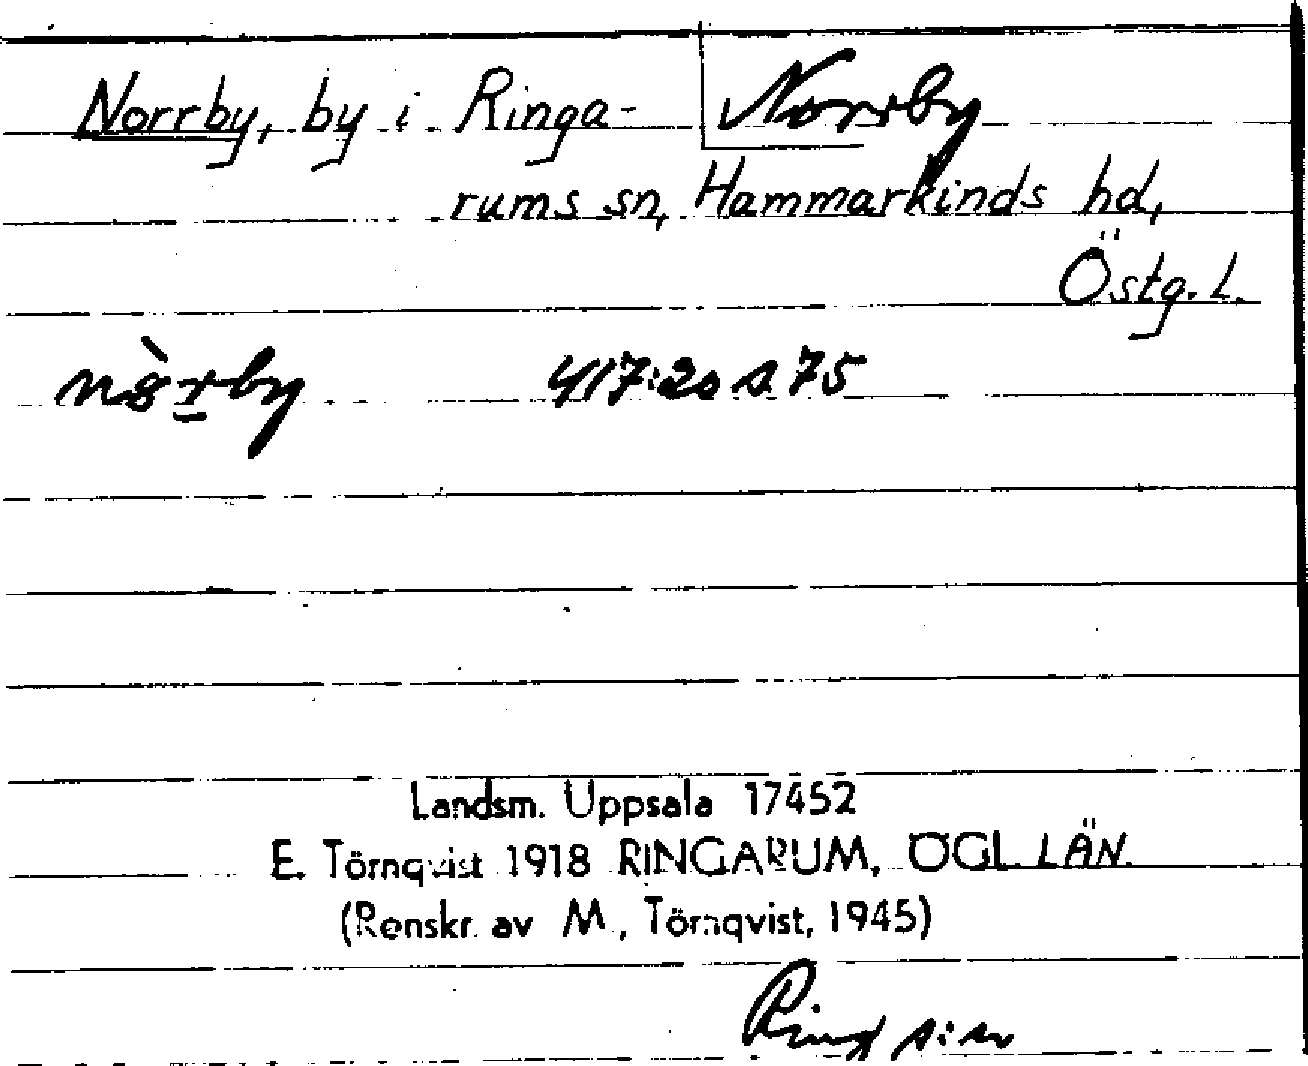 Norrby, by i Ringa- Norrby
rums sn, Hammarkinds hd,
Östg. L.
417:20 s. 75
Landsm. Uppsala 17452
E. Törnqvist 1918 RINGARUM, ÖGL. LÄN.
(Renskr. av M. Törnqvist, 1945)